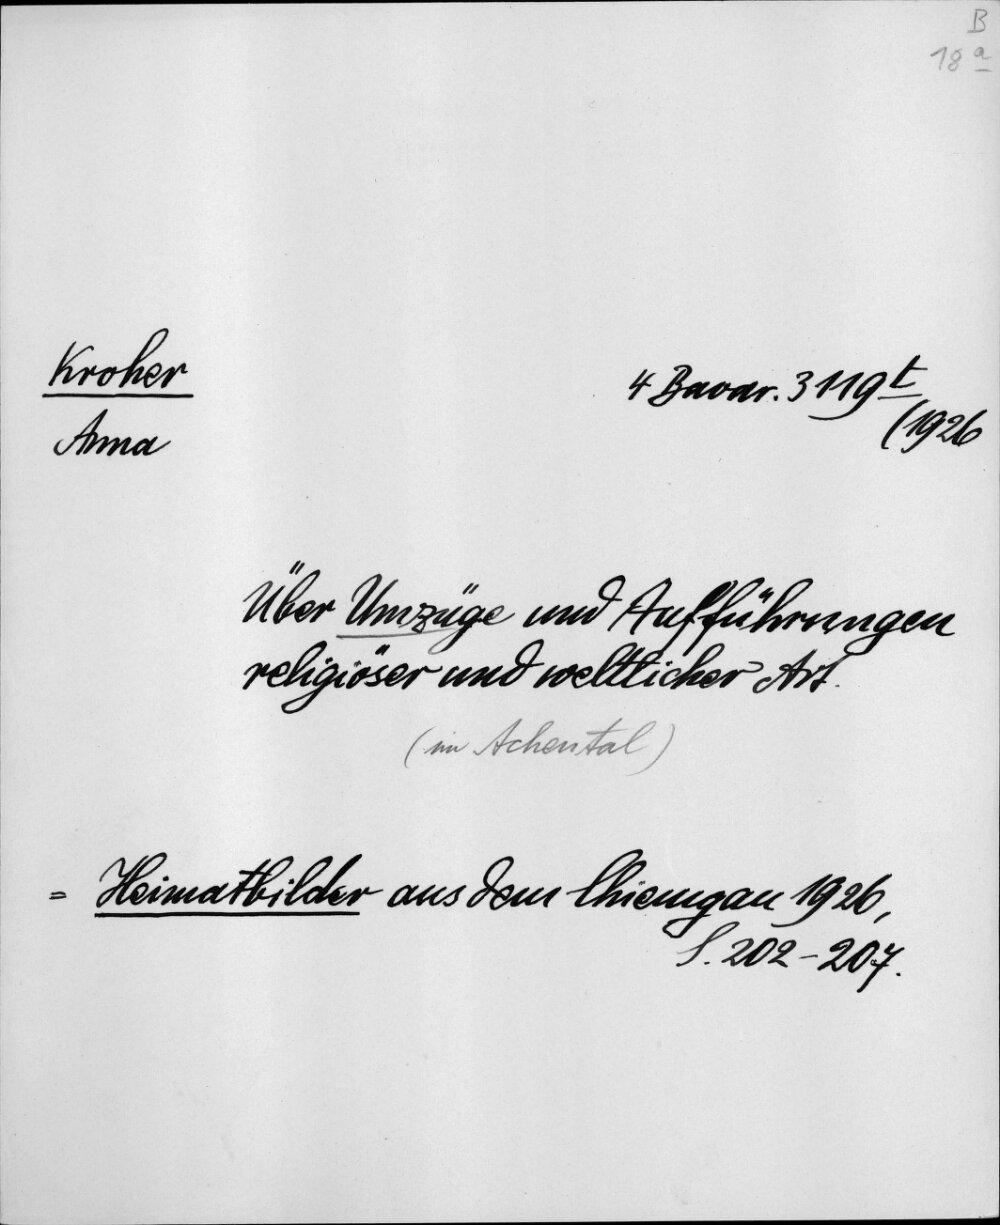 B
18 a
Kroher
4 Bavar. 3119 t
Anna
(1926
Über Umzüge und Aufführungen
religiöser und weltlicher Art.
(im Achental)
= Heimatbilder aus dem Chiemgau 1926,
S. 202-207.